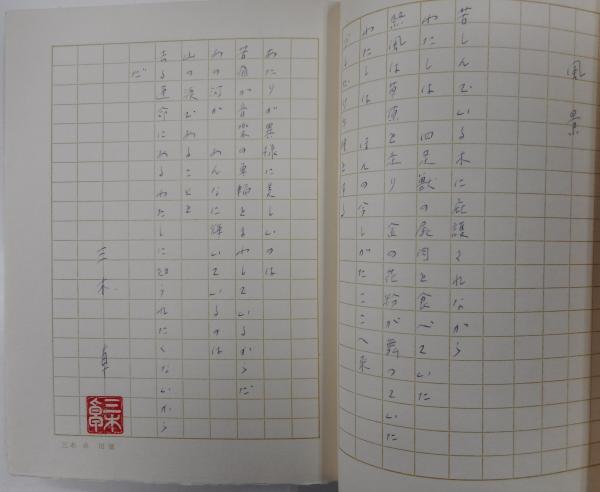 風景
苦しんでいる木に庇護されながら
わたしは四足獣の屍肉を食べていた
熱風は草原を走り金の花粉が舞っていた
わたしはほんの今しがたここへ来
あたりが異様に美しいのは
苦痛が音楽の車輪をまわしているからだ
あの河があんなに輝いているのは
山の涙であることを
去る運命にあるわたしに知らせたくないから
だ
三木卓
三木卓
三木卓用箋